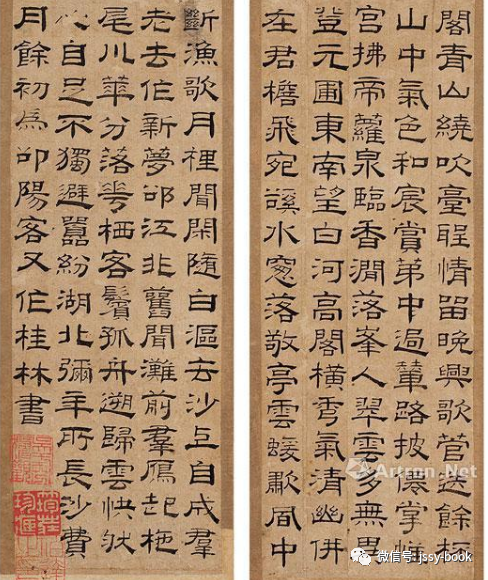 閣青山繞吹臺情留晚興歌管送餘杯
山中氣色和宸賞第中過輦路披僊掌帷
宮拂帝蘿泉臨香澗落峯入翠雲多無異
登元圃東南望白河高閣橫秀氣清幽併
在君檐飛宛谿水窻落敬亭雲蝯歗風中
斷漁歌月裡聞閑隨白漚去沙上自成羣
老去作新夢邵江非舊聞灘前羣鴈起柂
尾川華分落栖客鬢孤舟遡歸雲快然
心自足不獨避囂紛湖北彌年所長沙費
月餘初為邵陽客又作桂林書
Artron.Net
微信号: jssy-book